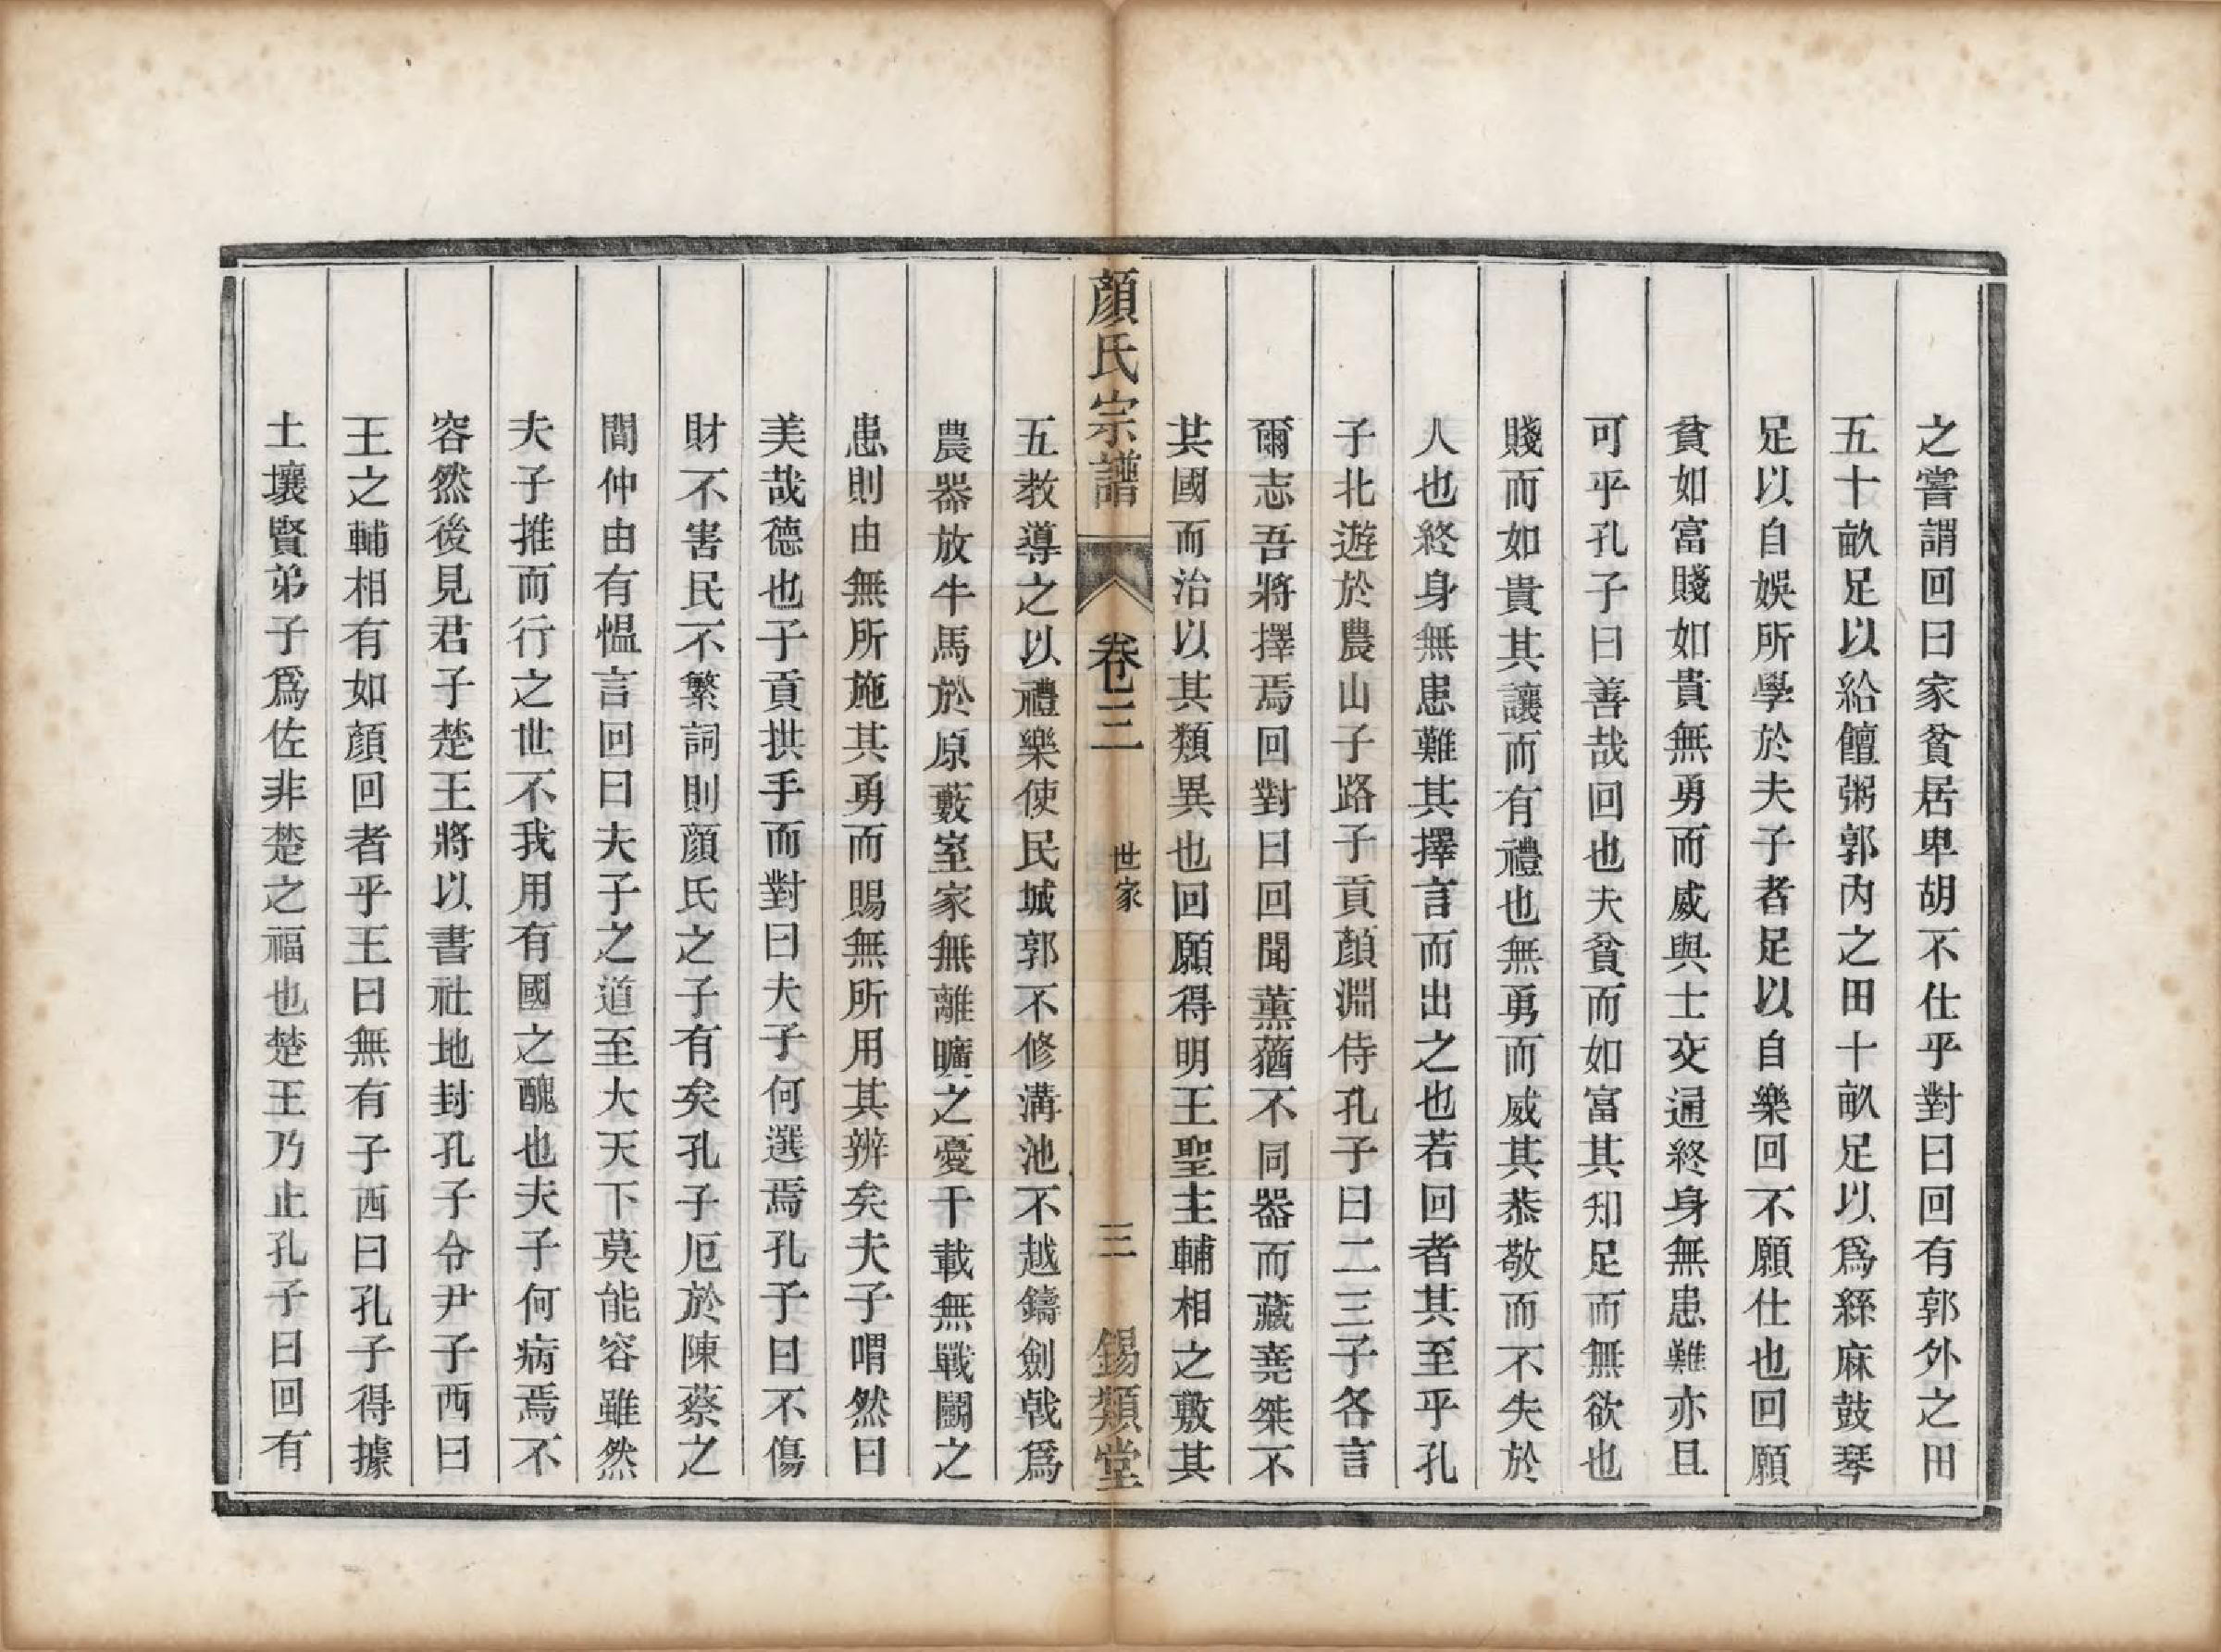 之嘗謂回曰家貧居卑胡不仕乎對曰回有郭外之田
五十畝足以給饘粥郭內之田十畝足以爲絲麻鼓琴
足以自娛所學於夫子者足以自樂回不願仕也回願
貧如富賤如貴無勇而威與士交通終身無患難亦且
可乎孔子曰善哉回也夫貧而如富其知足而無欲也
賤而如貴其讓而有禮也無勇而威其恭敬而不失於
人也終身無患難其擇言而出之也若回者其至乎孔
子北遊於農山子路子貢顏淵侍孔子曰二三子各言
爾志吾將擇焉回對曰回聞薰蕕不同器而藏堯桀不
其國而治以其類異也回願得明王聖主輔相之敷其
顏氏宗譜
卷三
世家
三
錫類堂
五教導之以禮樂使民城郭不修溝池不越鑄劍戟爲
農器放牛馬於原藪室家無離曠之憂千載無戰鬭之
患則由無所施其勇而賜無所用其辨矣夫子喟然曰
美哉德也子貢拱手而對曰夫子何選焉孔子曰不傷
財不害民不繁詞則顏氏之子有矣孔子厄於陳蔡之
間仲由有慍言回曰夫子之道至大天下莫能容雖然
夫子推而行之世不我用有國之醜也夫子何病焉不
容然後見君子楚王將以書社地封孔子令尹子西曰
王之輔相有如顏回者乎王曰無有子西曰孔子得據
土壤賢弟子爲佐非楚之福也楚王乃止孔子曰回有